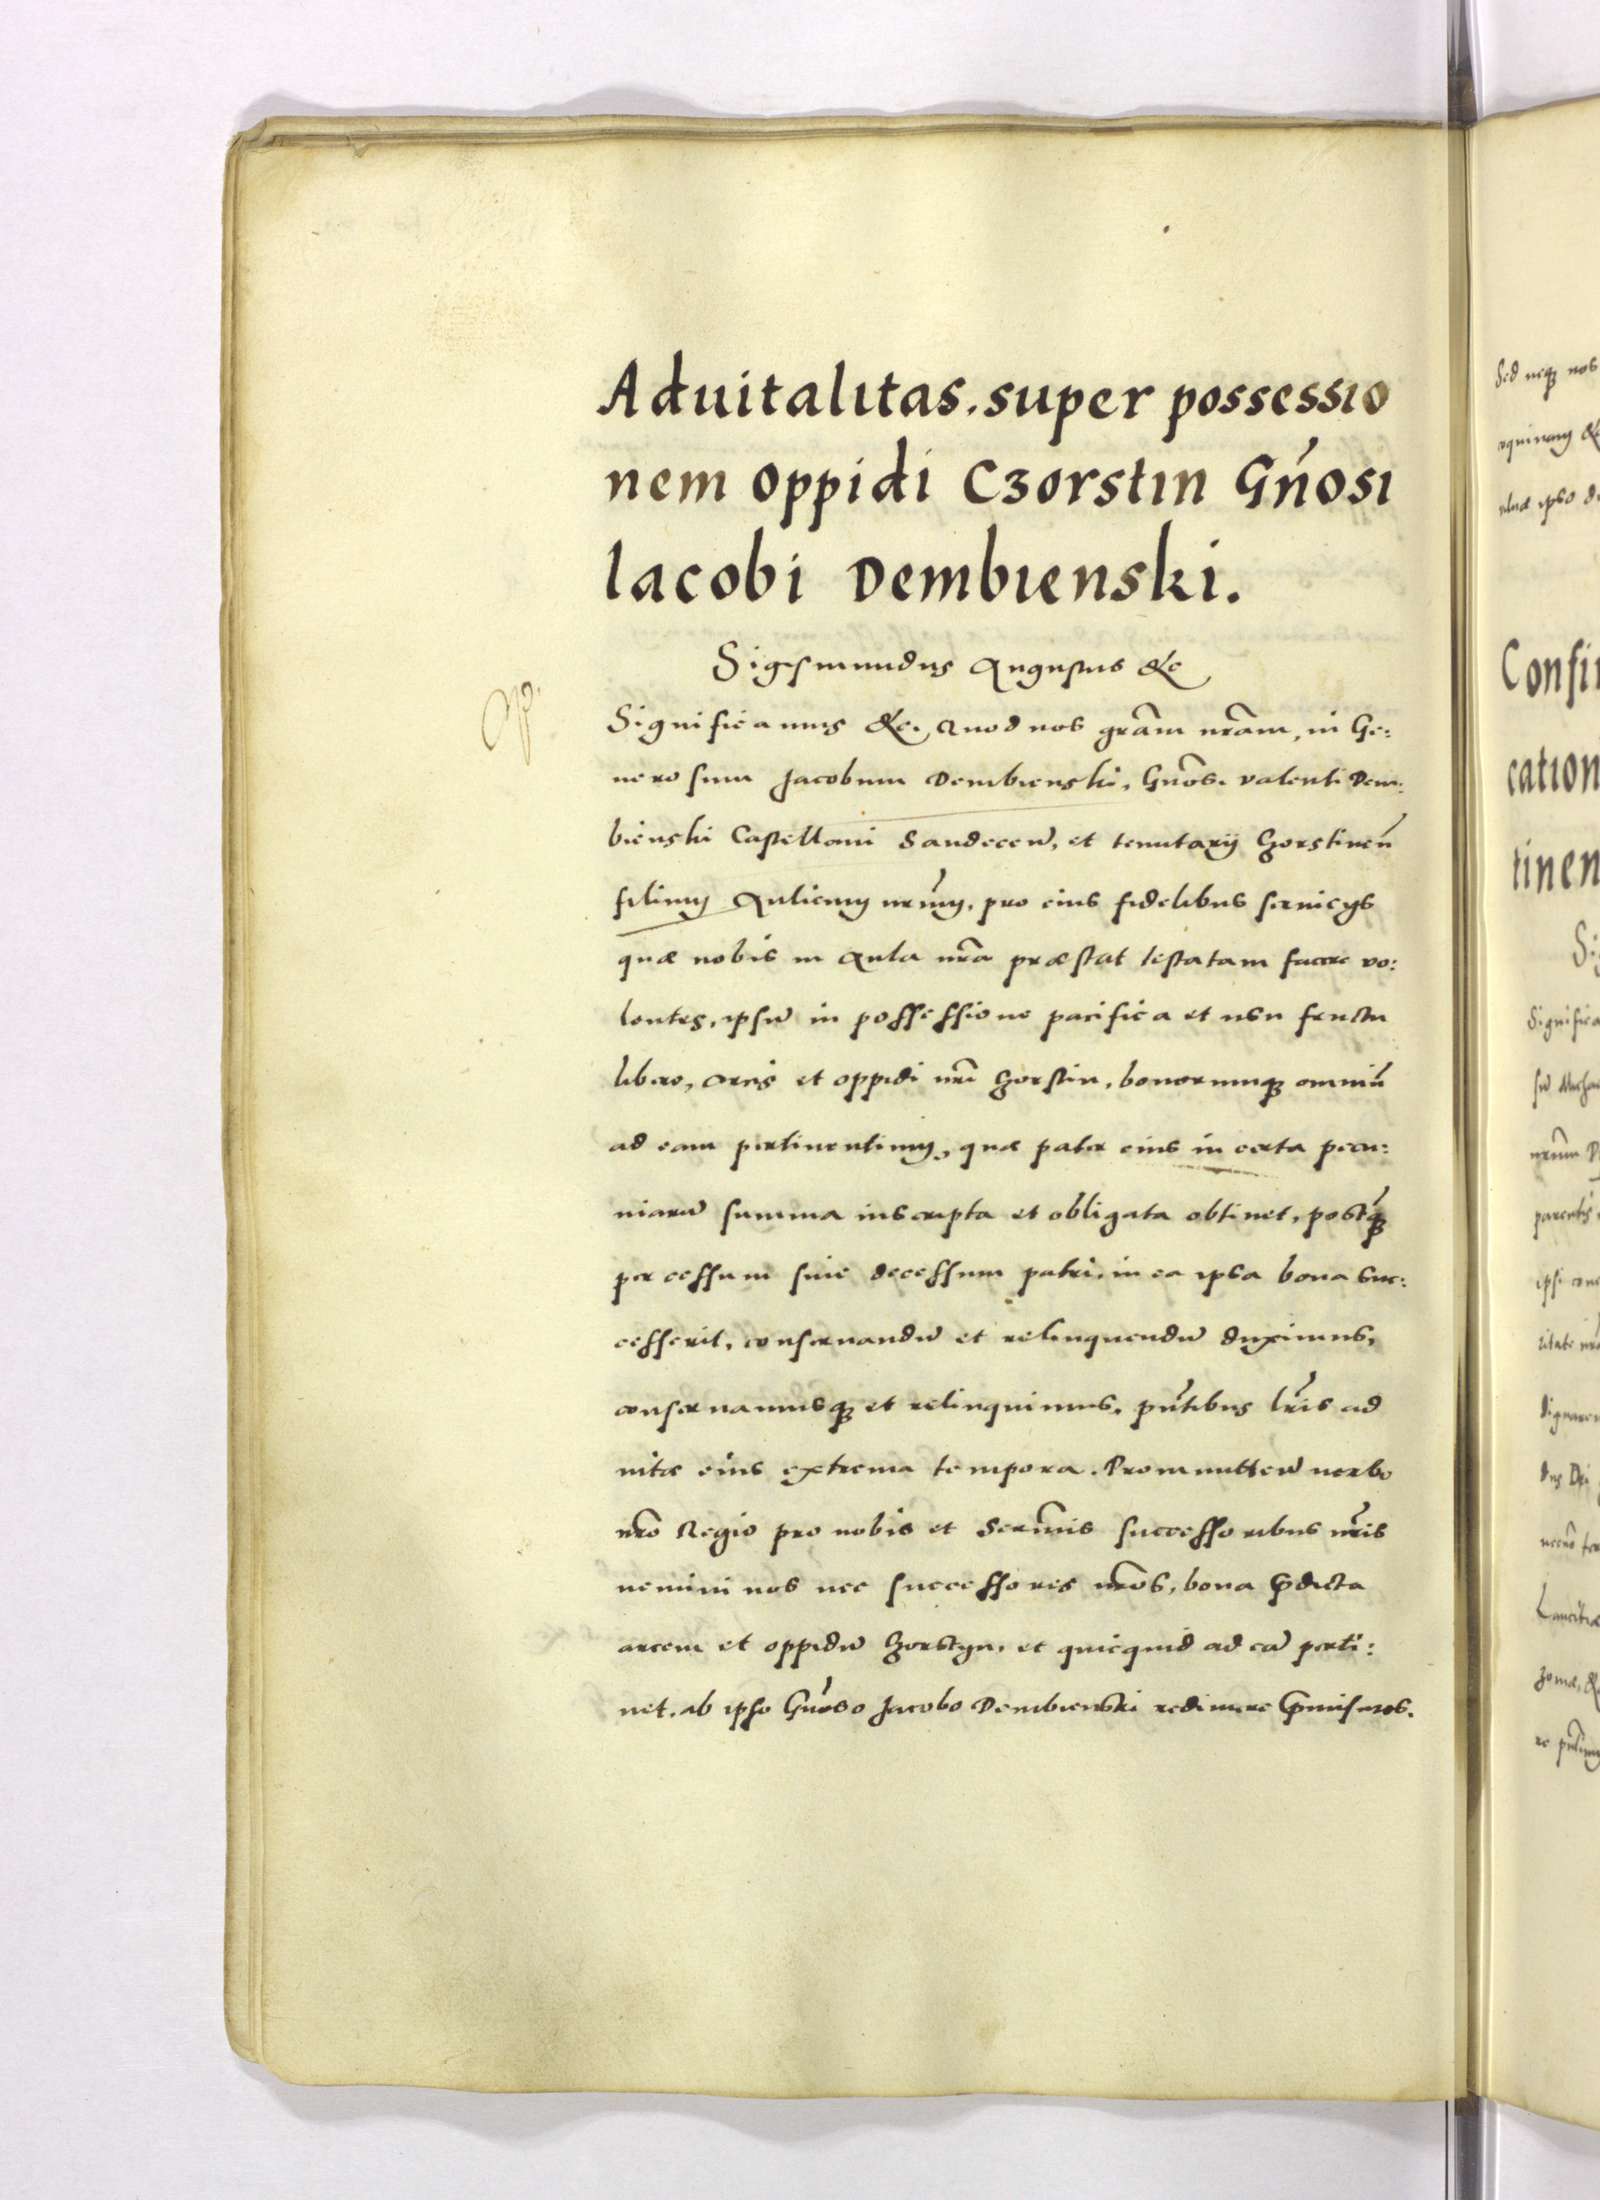 Aduitalitas. super possessio
nem oppidi Czorstin Gńosi
Iacobi Dembienski.
Sigismundus Augustus &c
Significamus &c. Quod nos grãm nrãm, in Ge:
nerosum Jacobum Dembienski, Gnõsi valenti Dem:
bienski Castellani Sandecen̄, et tenutarij Czorstinen̄
filium Aulicum nrũm, pro eius fidelibus seruicijs
quæ nobis in Aula nrã præstat testatam facere vo:
lentes, ipsũ in possessione pacifica et usu fructu
libero, arcis et oppidi nrĩ Czorstin, bonorumq3 omniũ
ad eam pertinentium, quæ pater eius in certa pecu:
niarũ summa inscripta et obligata obtinet, postq̃3
per cessum siue decessum patris, in ea ipsa bona suc:
cesserit, conseruandũ et relinquendũ duximus,
conseruamusq3 et relinquimus, pn̄tibus lrĩs ad
uitæ eius extrema tempora. Promittten̄ verbo
nrõ Regio pro nobis et Serm̃is successoribus nrĩs
nemini nos nec successores nrõs, bona p̄dicta
arcem et oppidũ Czorstyn, et quicquid ad eã perti:
net, ab ipso Gn̄oso Jacobo Dembienski redimere p̄missuros.
Sed neq3 nos
Confir
cation
tinen
Significa
parentis